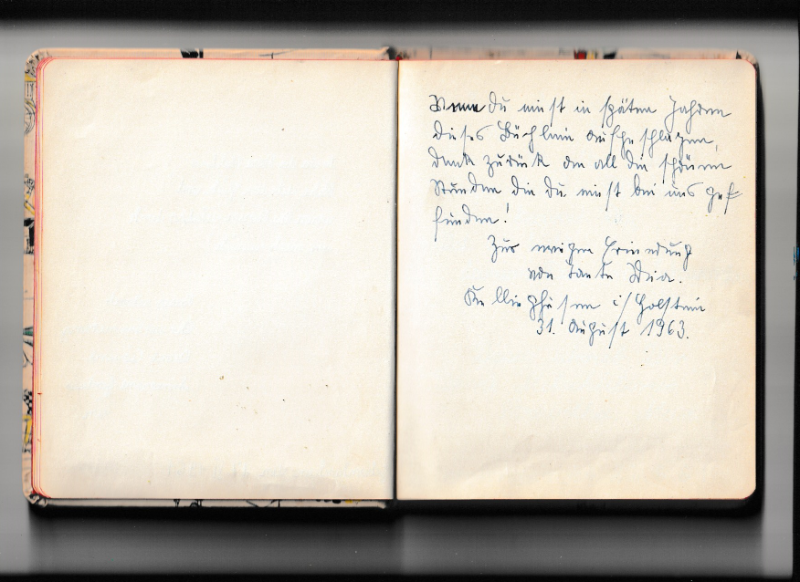 Wenn du einst in späten Jahren
dieses Büchlein aufgeschlagen,
denk zurück an all die schönen
Stunden die du einst bei uns gef
funden!
Zur ewigen Erinerung
von Tante Mia.
i/Holstein
31. August 1963.